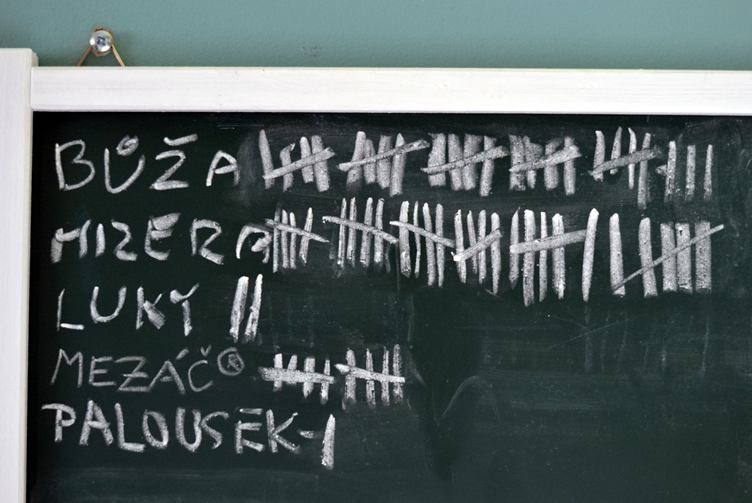 BŮŽA
MIZERA
LUKY
MEZÁČ®
PALOUSEK-